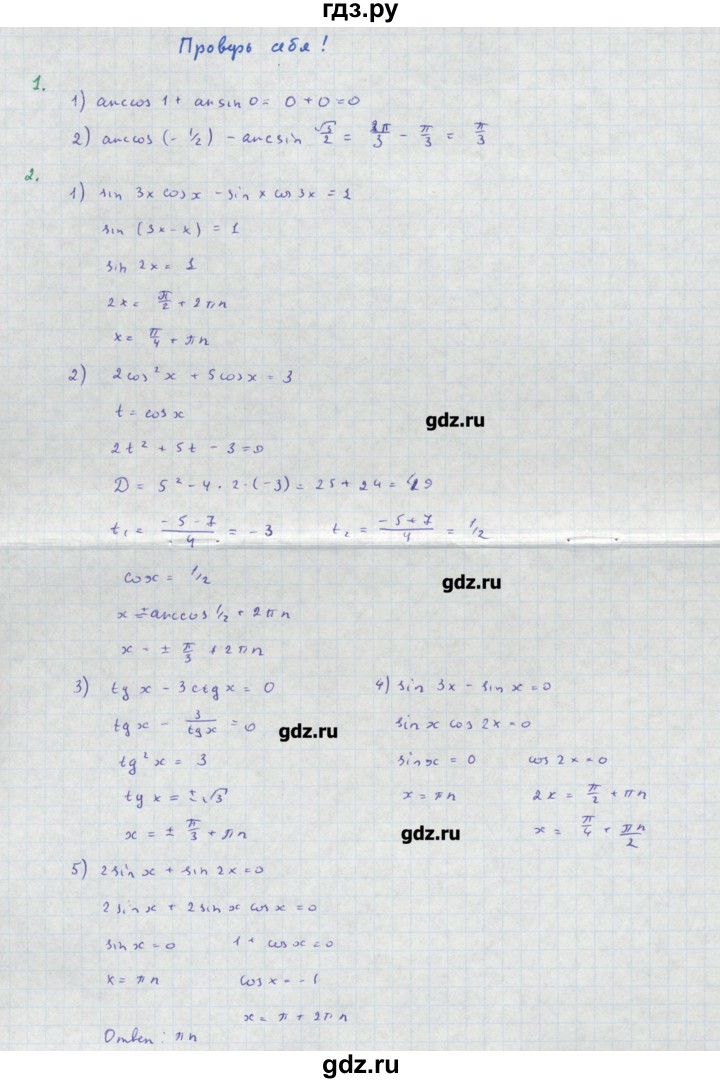 гдз.ру
Проверь себя!
1.
1) arccos 1 + arsin 0 = 0 + 0 = 0
2) arccos (- 1/2) - arcsin √3/2 = 2π/3 - π/3 = π/3
2.
1) sin 3x cos x - sin x cos 3x = 1
sin (3x - x) = 1
sin 2x = 1
2x = π/2 + 2πn
x = π/4 + πn
2) 2cos² x + 5cos x = 3
t = cos x
gdz.ru
2t² + 5t - 3 = 0
D = 5² - 4 · 2 · (-3) = 25 + 24 = 49
t₁ = (-5-7)/4 = -3 t₂ = (-5+7)/4 = 1/2
cosx = 1/2
gdz.ru
x = ± arccos 1/2 + 2πn
x = ± π/3 + 2πn
3) tg x - 3ctg x = 0
tg x - 3/tg x = 0
gdz.ru
tg² x = 3
tg x = ± √3
x = ± π/3 + πn
4) sin 3x - sin x = 0
sin x cos 2x = 0
sin x = 0 cos 2x = 0
x = πn 2x = π/2 + πn
gdz.ru x = π/4 + πn/2
5) 2sin x + sin 2x = 0
2 sin x + 2 sin x cos x = 0
sin x = 0 1 + cos x = 0
x = πn cos x = -1
x = π + 2πn
Ответ: πn
gdz.ru